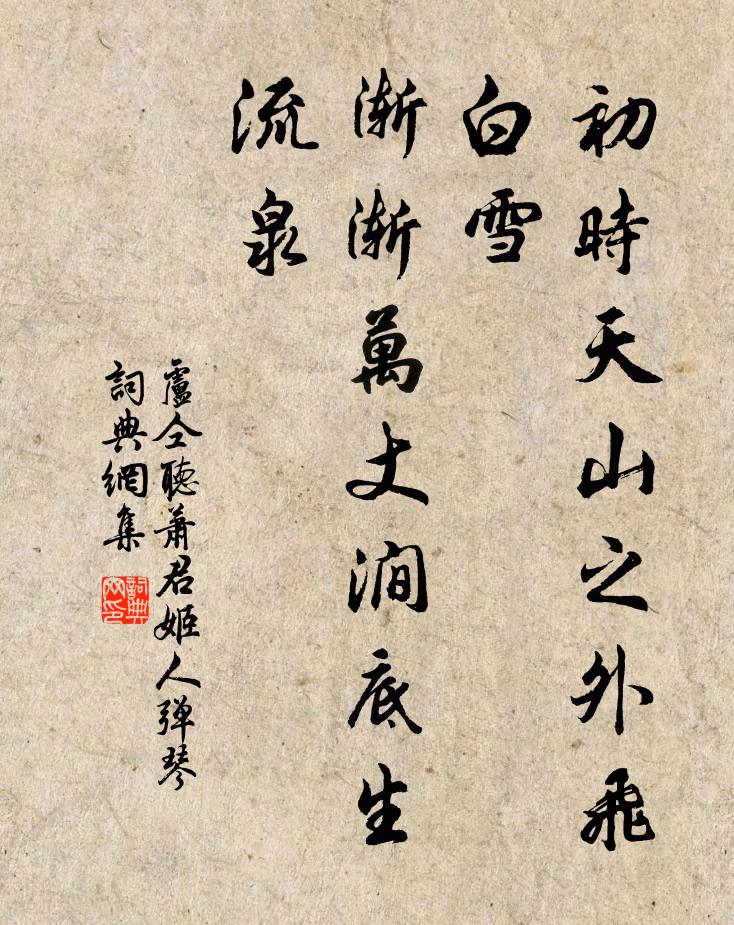 初時天山之外飛
白雪
漸漸萬丈澗底生
流泉
盧仝聽蕭君姬人彈琴
詞典網集
詞典網印